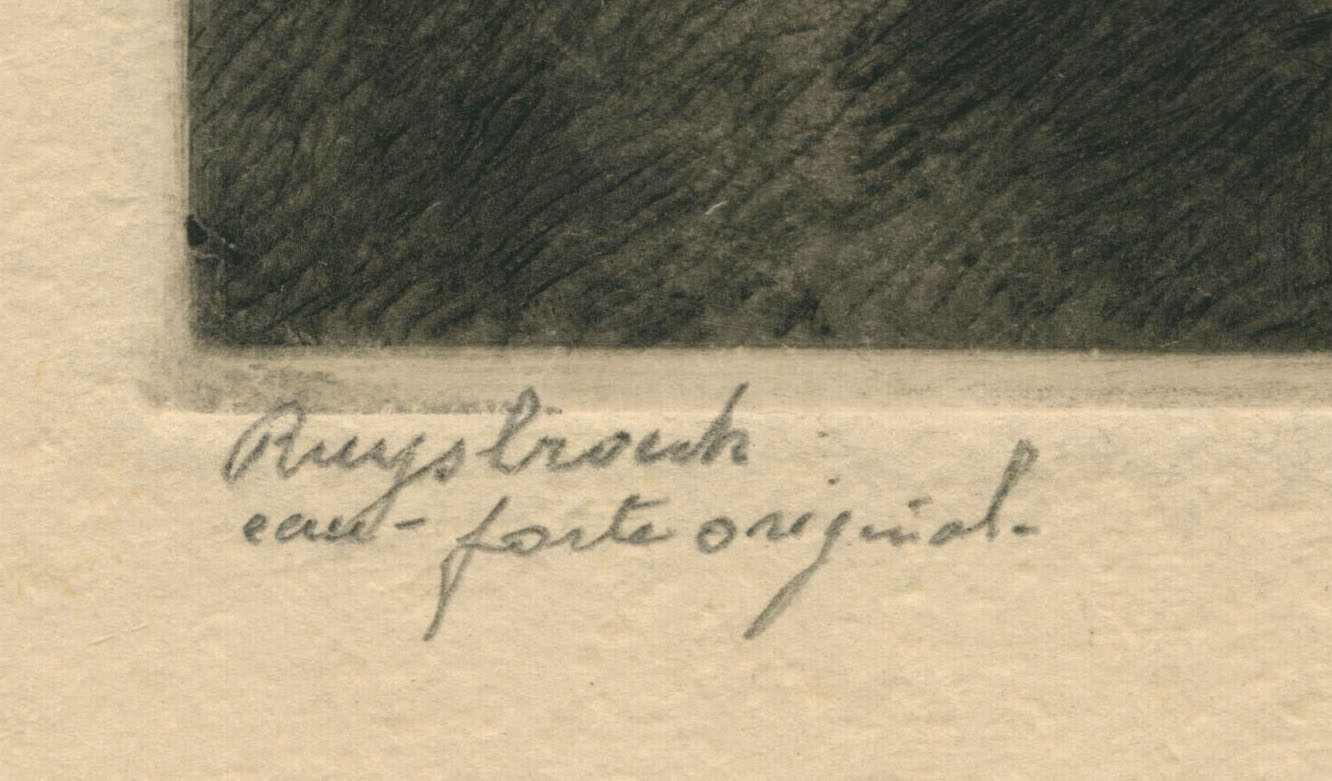 Ruysbroeck
eau-forte original.